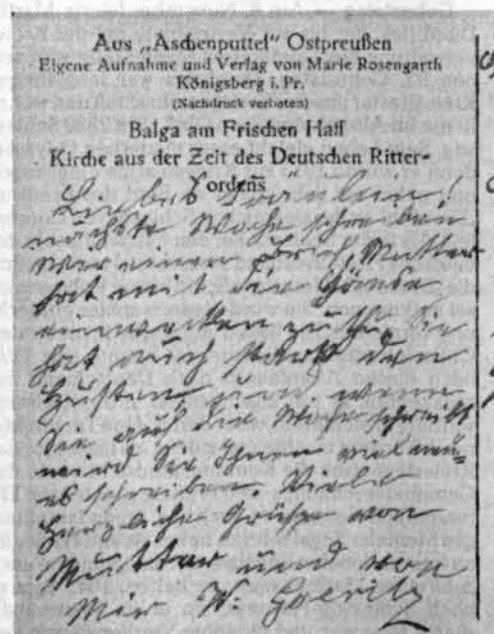 Aus „Aschenputtel" Ostpreußen
Eigene Aufnahme und Verlag von Marie Rosengarth
Königsberg i. Pr.
(Nachdruck verboten)
Balga am Frischen Haff
Kirche aus der Zeit des Deutschen Ritter-
ordens
Liebes Fräulein!
nächste Woche schreiben
wir einen Brief, Mutter
hat mit die Gänse
einwecken zu thun, Sie
hat auch stark den
Husten, und wenn
Sie auf die Woche schreibt
wird Sie Ihnen viel neu-
es schreiben. Viele
Herzliche Grüße von
Mutter und von
Mir W. Goeritz